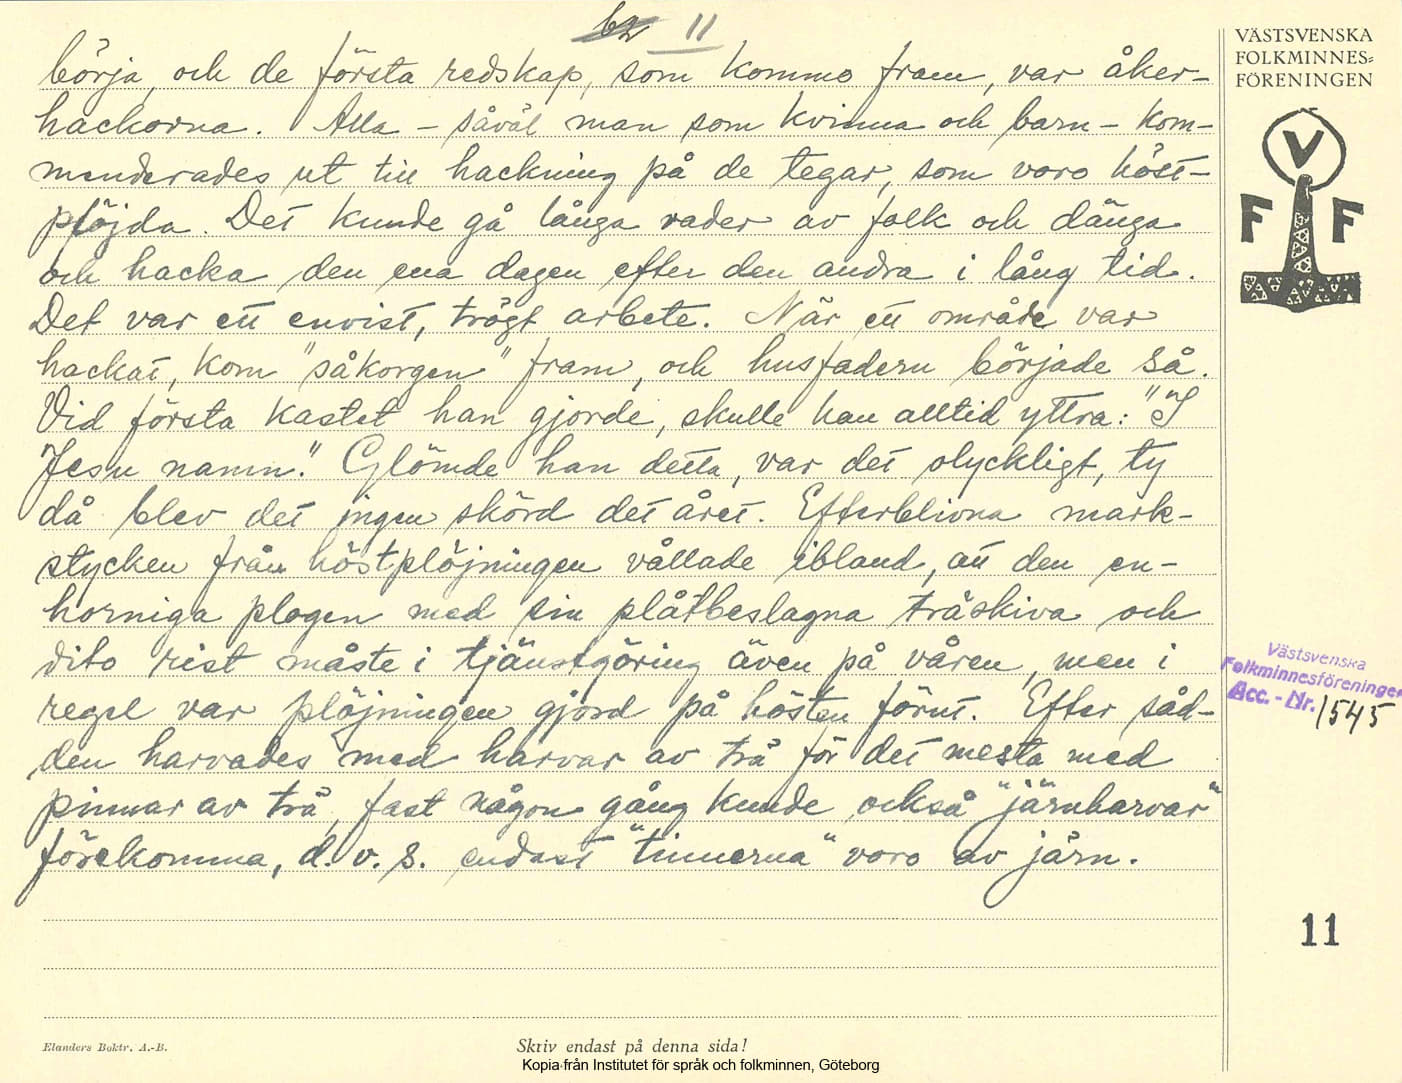 11
börja, och de första redskap, som kommo fram, var åker-
hackorna. Alla - såväl man som kvinna och barn - kom-
menderades ut till hackning på de tegar, som voro höst-
plöjda. Det kunde gå långa rader av folk och dänga
och hacka den ena dagen efter den andra i lång tid.
Det var ett envist, trögt arbete. När ett område var
hackat, kom "såkorgen" fram, och husfadern började så.
Vid första kastet han gjorde, skulle han alltid yttra: "I
Jesu namn." Glömde han detta, var det olyckligt, ty
då blev det ingen skörd det året. Efterblivna mark-
stycken från höstplöjningen vållade ibland, att den en-
horniga plogen med sin plåtbeslagna träskiva och
dito rist måste i tjänstgöring även på våren, men i
regel var plöjningen gjord på hösten förut. Efter såd-
den harvades med harvar av trä för det mesta med
pinnar av trä, fast någon gång kunde också "järnharvar"
förekomma, d. v. s. endast "tinnerna" voro av järn.
VÄSTSVENSKA
FOLKMINNES=
FÖRENINGEN
V
F F
Västsvenska
Folkminnesföreningen
Acc. - Nr. 1545
11
Elanders Boktr. A.-B.
Skriv endast på denna sida!
Kopia från Institutet för språk och folkminnen, Göteborg